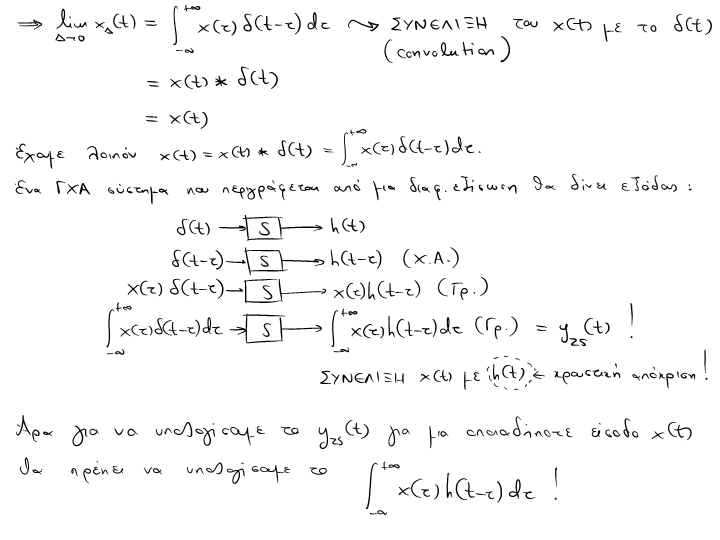 ⇒ lim_{Δ→0} x_Δ(t) = ∫_{-∞}^{+∞} x(τ) δ(t-τ) dτ ⤳ ΣΥΝΕΛΙΞΗ του x(t) με το δ(t)
(convolution)
= x(t) * δ(t)
= x(t)
Έχουμε λοιπόν x(t) = x(t) * δ(t) = ∫_{-∞}^{+∞} x(τ) δ(t-τ) dτ.
Ένα ΓΧΑ σύστημα που περιγράφεται από μια διαφ. εξίσωση θα δίνει εξόδους :
δ(t) → S → h(t)
δ(t-τ) → S → h(t-τ) (Χ.Α.)
x(τ) δ(t-τ) → S → x(τ) h(t-τ) (Γρ.)
∫_{-∞}^{+∞} x(τ) δ(t-τ) dτ → S → ∫_{-∞}^{+∞} x(τ) h(t-τ) dτ (Γρ.) = y_{zs}(t) !
ΣΥΝΕΛΙΞΗ x(t) με h(t) ← κρουστική απόκριση !
Άρα για να υπολογίσουμε το y_{zs}(t) για μια οποιαδήποτε είσοδο x(t)
θα πρέπει να υπολογίσουμε το ∫_{-∞}^{+∞} x(τ) h(t-τ) dτ !